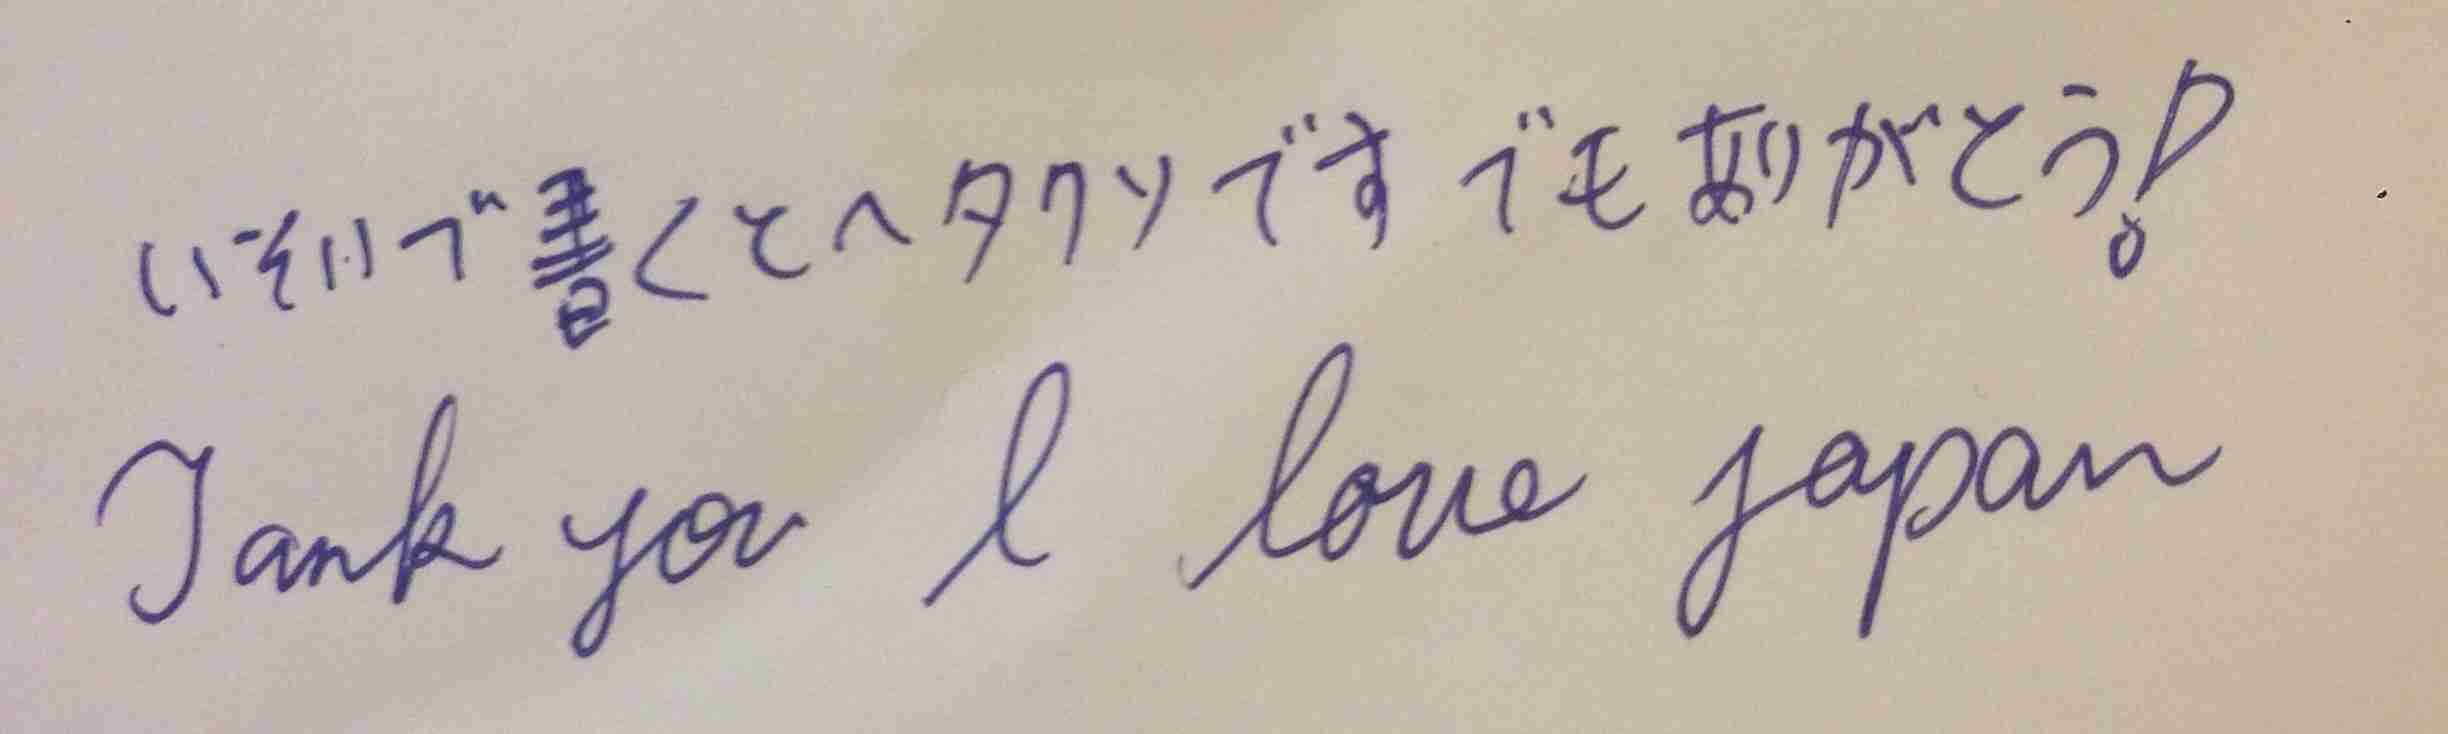 いそいで書くとヘタクソですでもありがとう!
Tank you I love japan